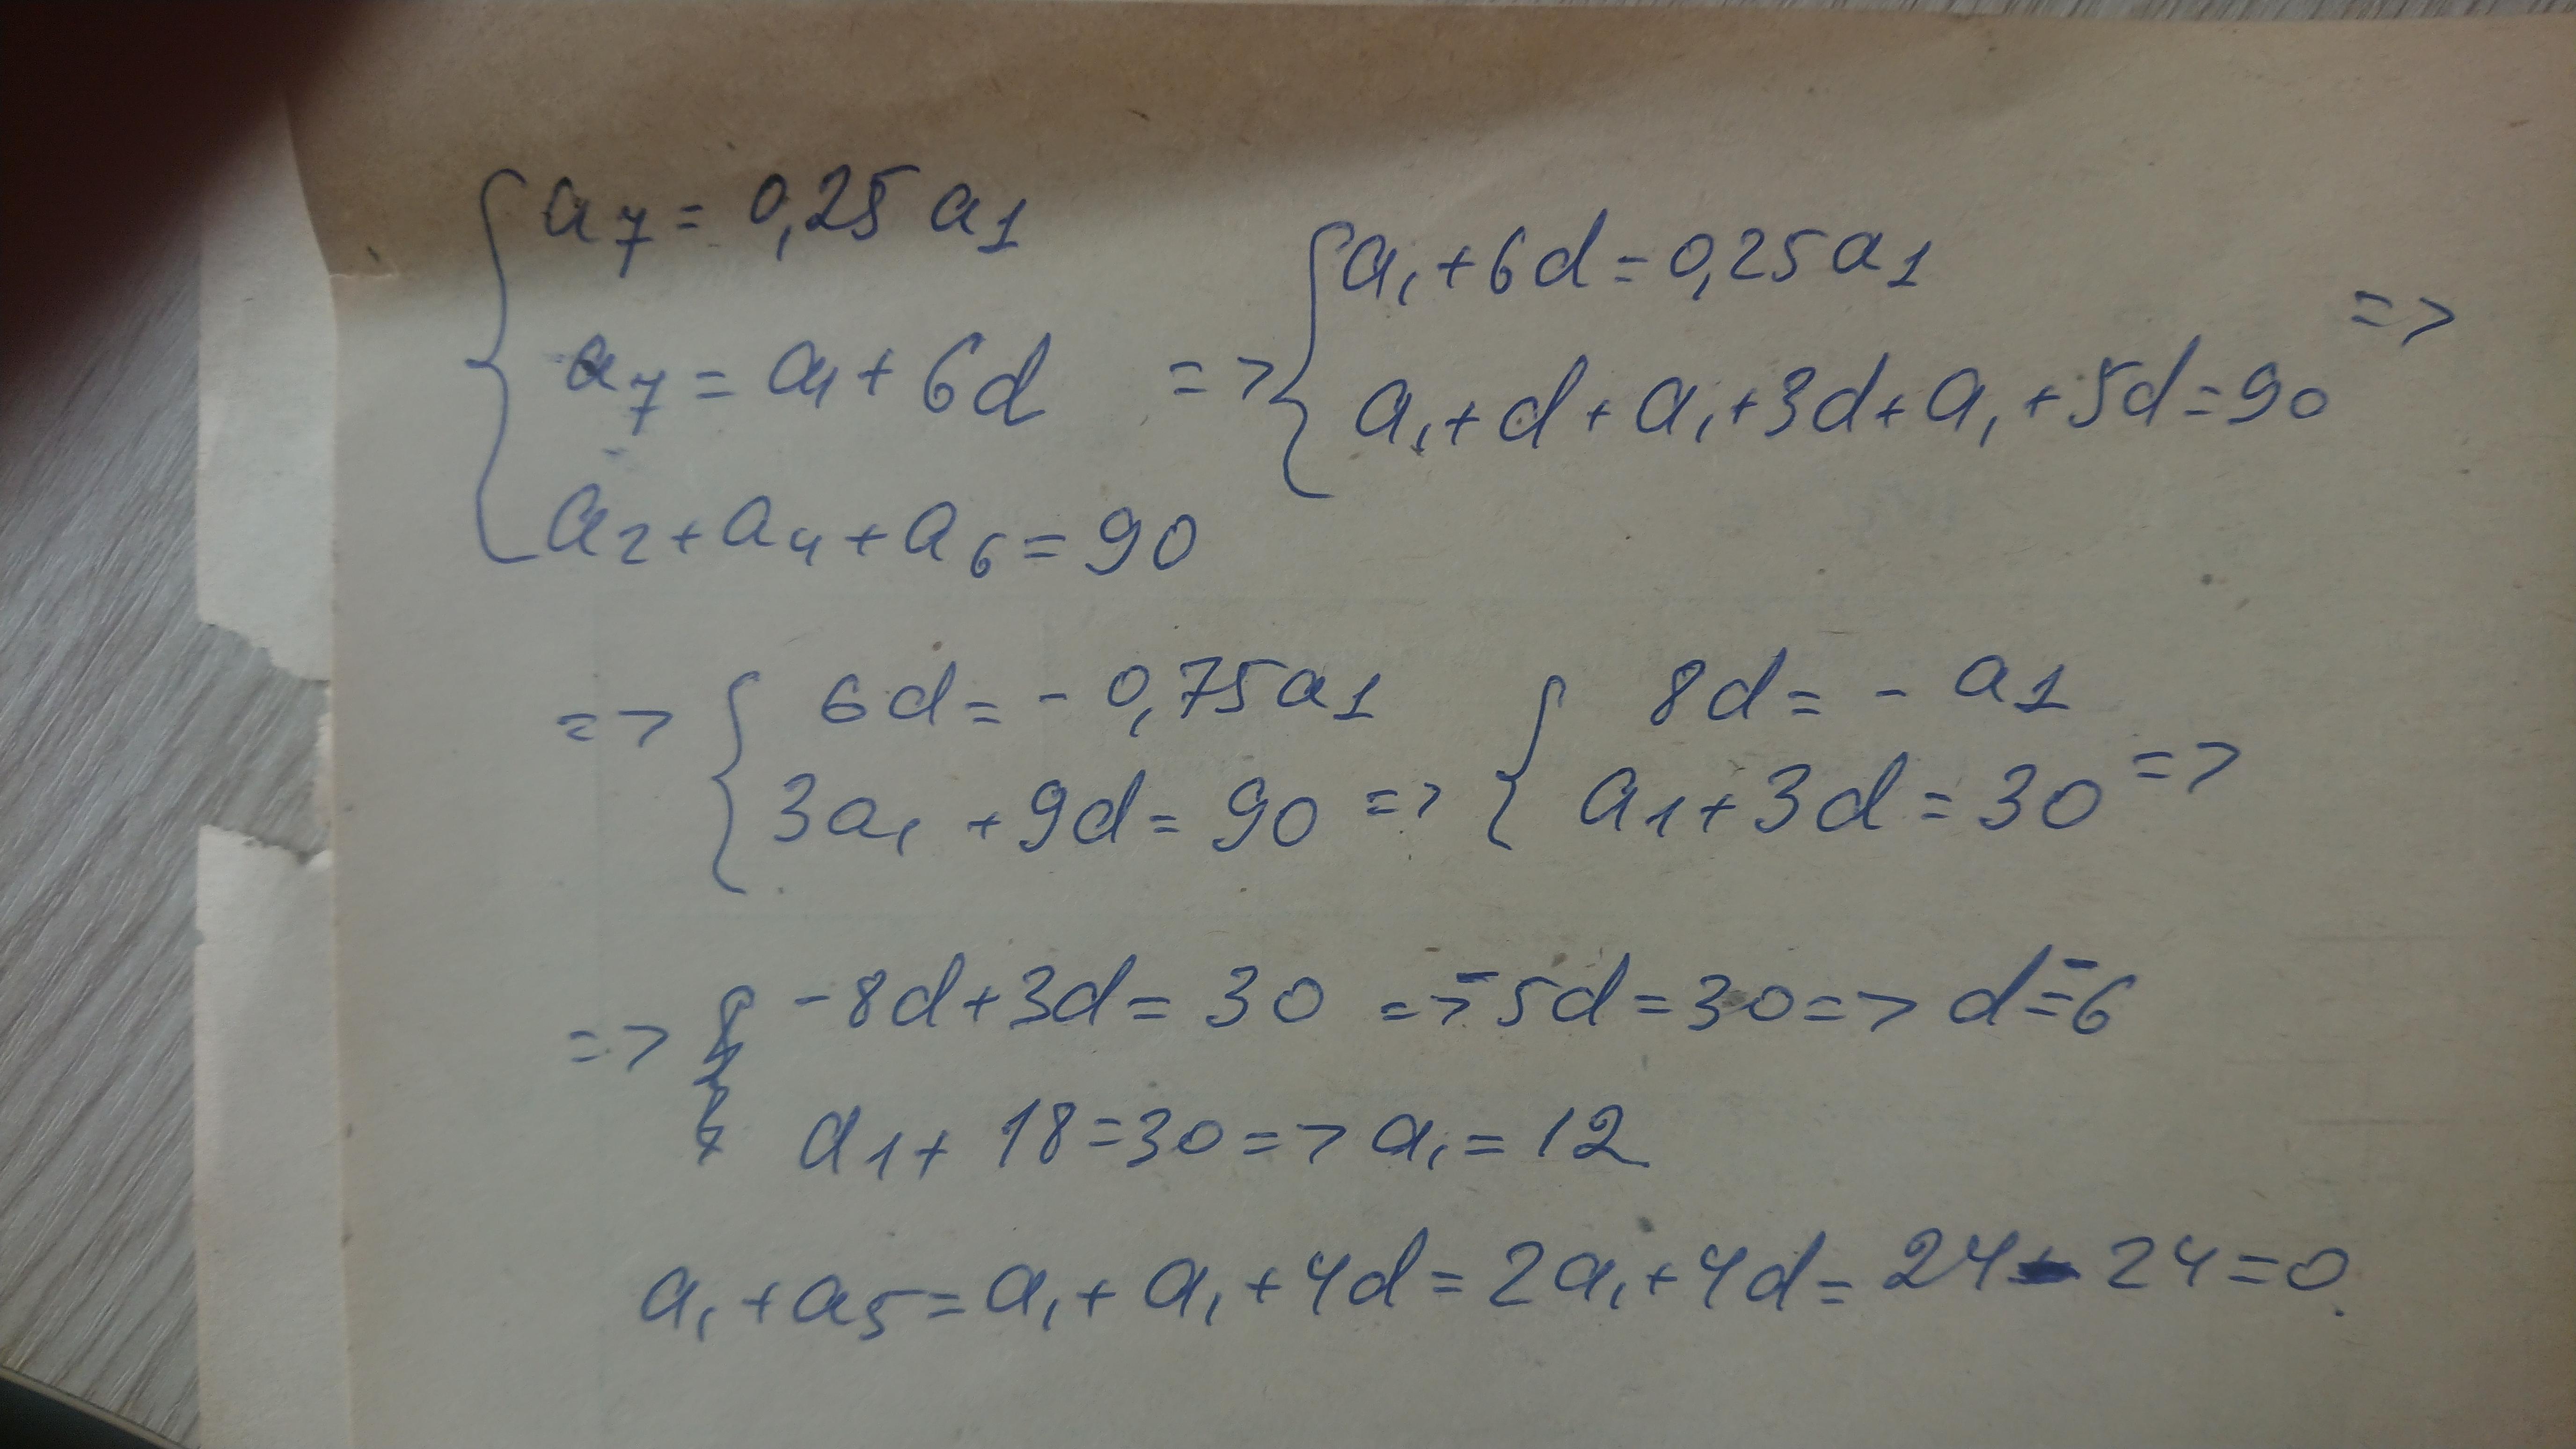 { a7 = 0,25 a1
a7 = a1 + 6d
a2 + a4 + a6 = 90
=> { a1 + 6d = 0,25a1
a1 + d + a1 + 3d + a1 + 5d = 90 =>
=> { 6d = - 0,75a1
3a1 + 9d = 90 =>
{ 8d = - a1
a1 + 3d = 30 =>
=> -8d + 3d = 30 => -5d = 30 => d = -6
a1 + 18 = 30 => a1 = 12
a1 + a5 = a1 + a1 + 4d = 2a1 + 4d = 24 - 24 = 0.